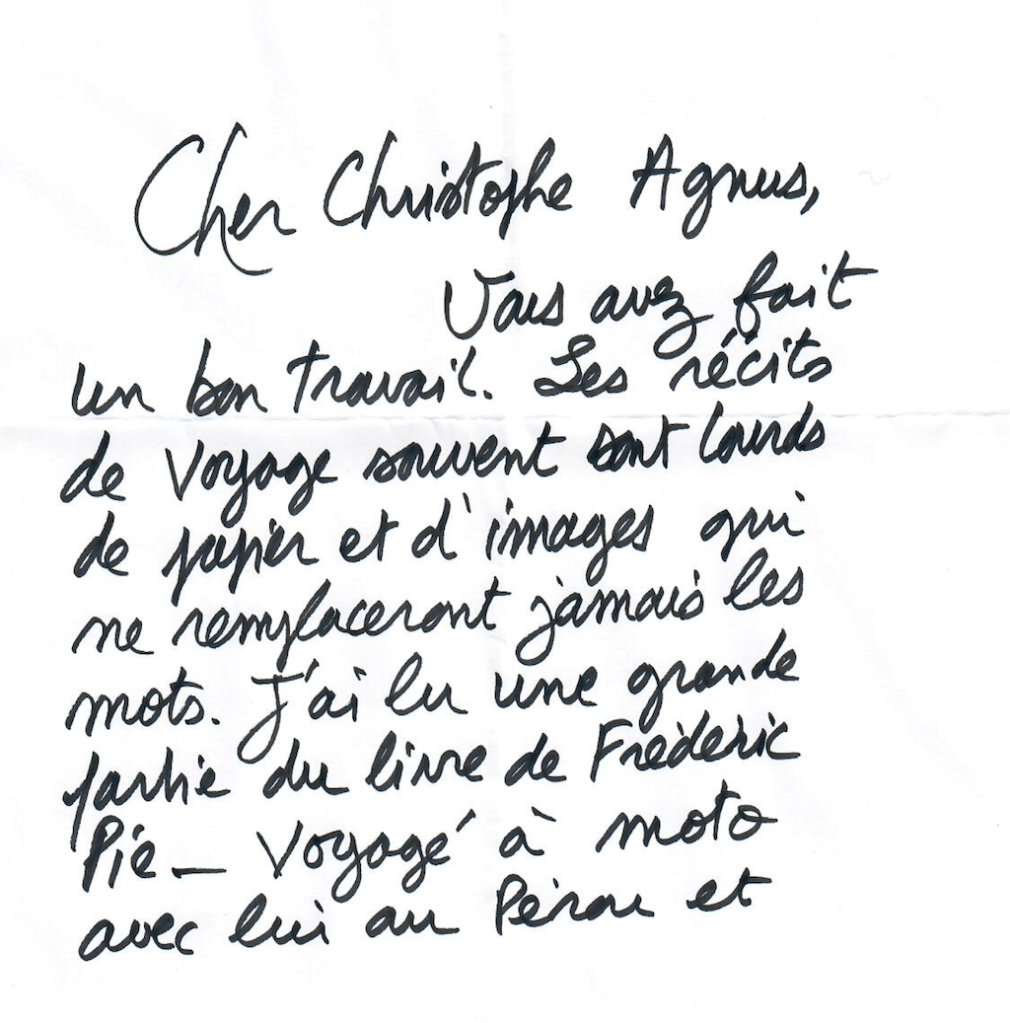 Cher Christophe Agnus,
Vous avez fait
un bon travail. Les récits
de voyage souvent sont lourds
de papier et d'images qui
ne remplaceront jamais les
mots. J'ai lu une grande
partie du livre de Frédéric
Pié _ Voyagé à moto
avec lui au Pérou et